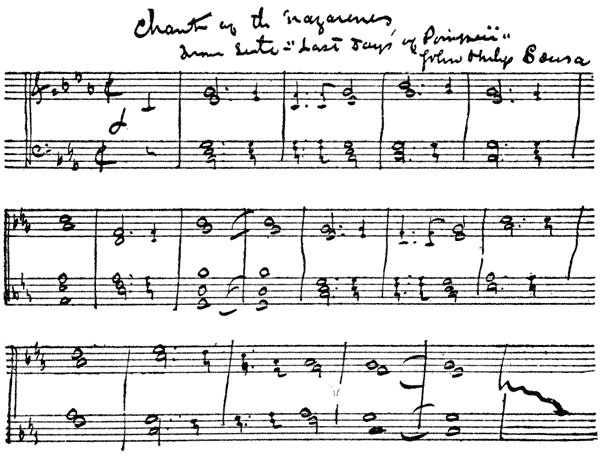 Chant of the Nazarenes
from Suite - "Last Days of Pompeii"
John Philip Sousa